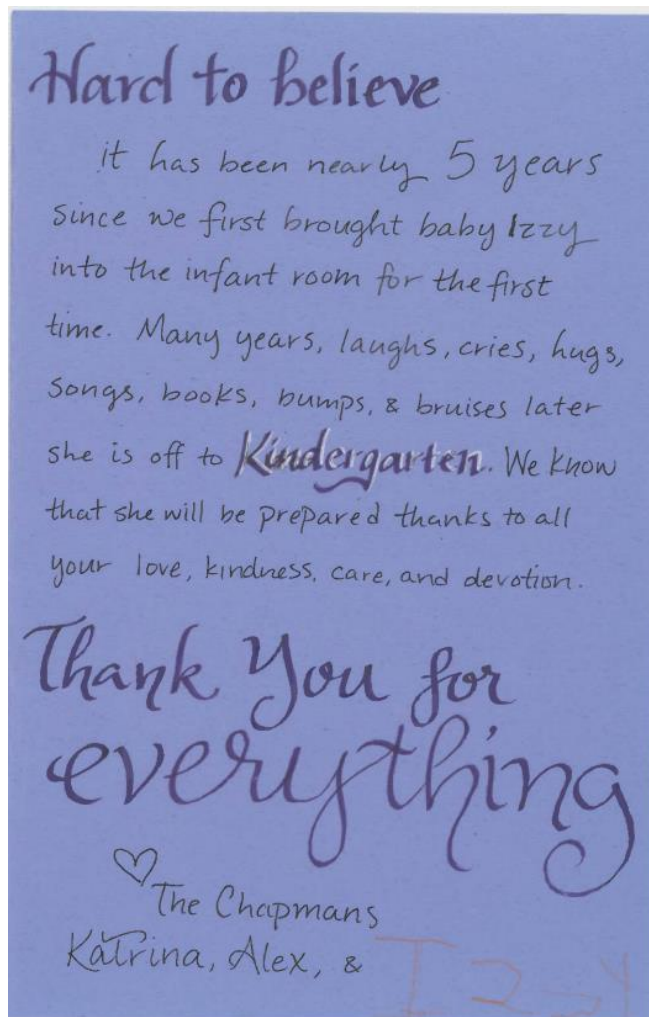 Hard to believe
it has been nearly 5 years
since we first brought baby Izzy
into the infant room for the first
time. Many years, laughs, cries, hugs,
songs, books, bumps, & bruises later
she is off to Kindergarten. We know
that she will be prepared thanks to all
your love, kindness, care, and devotion.
Thank You for
everything
♡
The Chapmans
Katrina, Alex, & Izzy